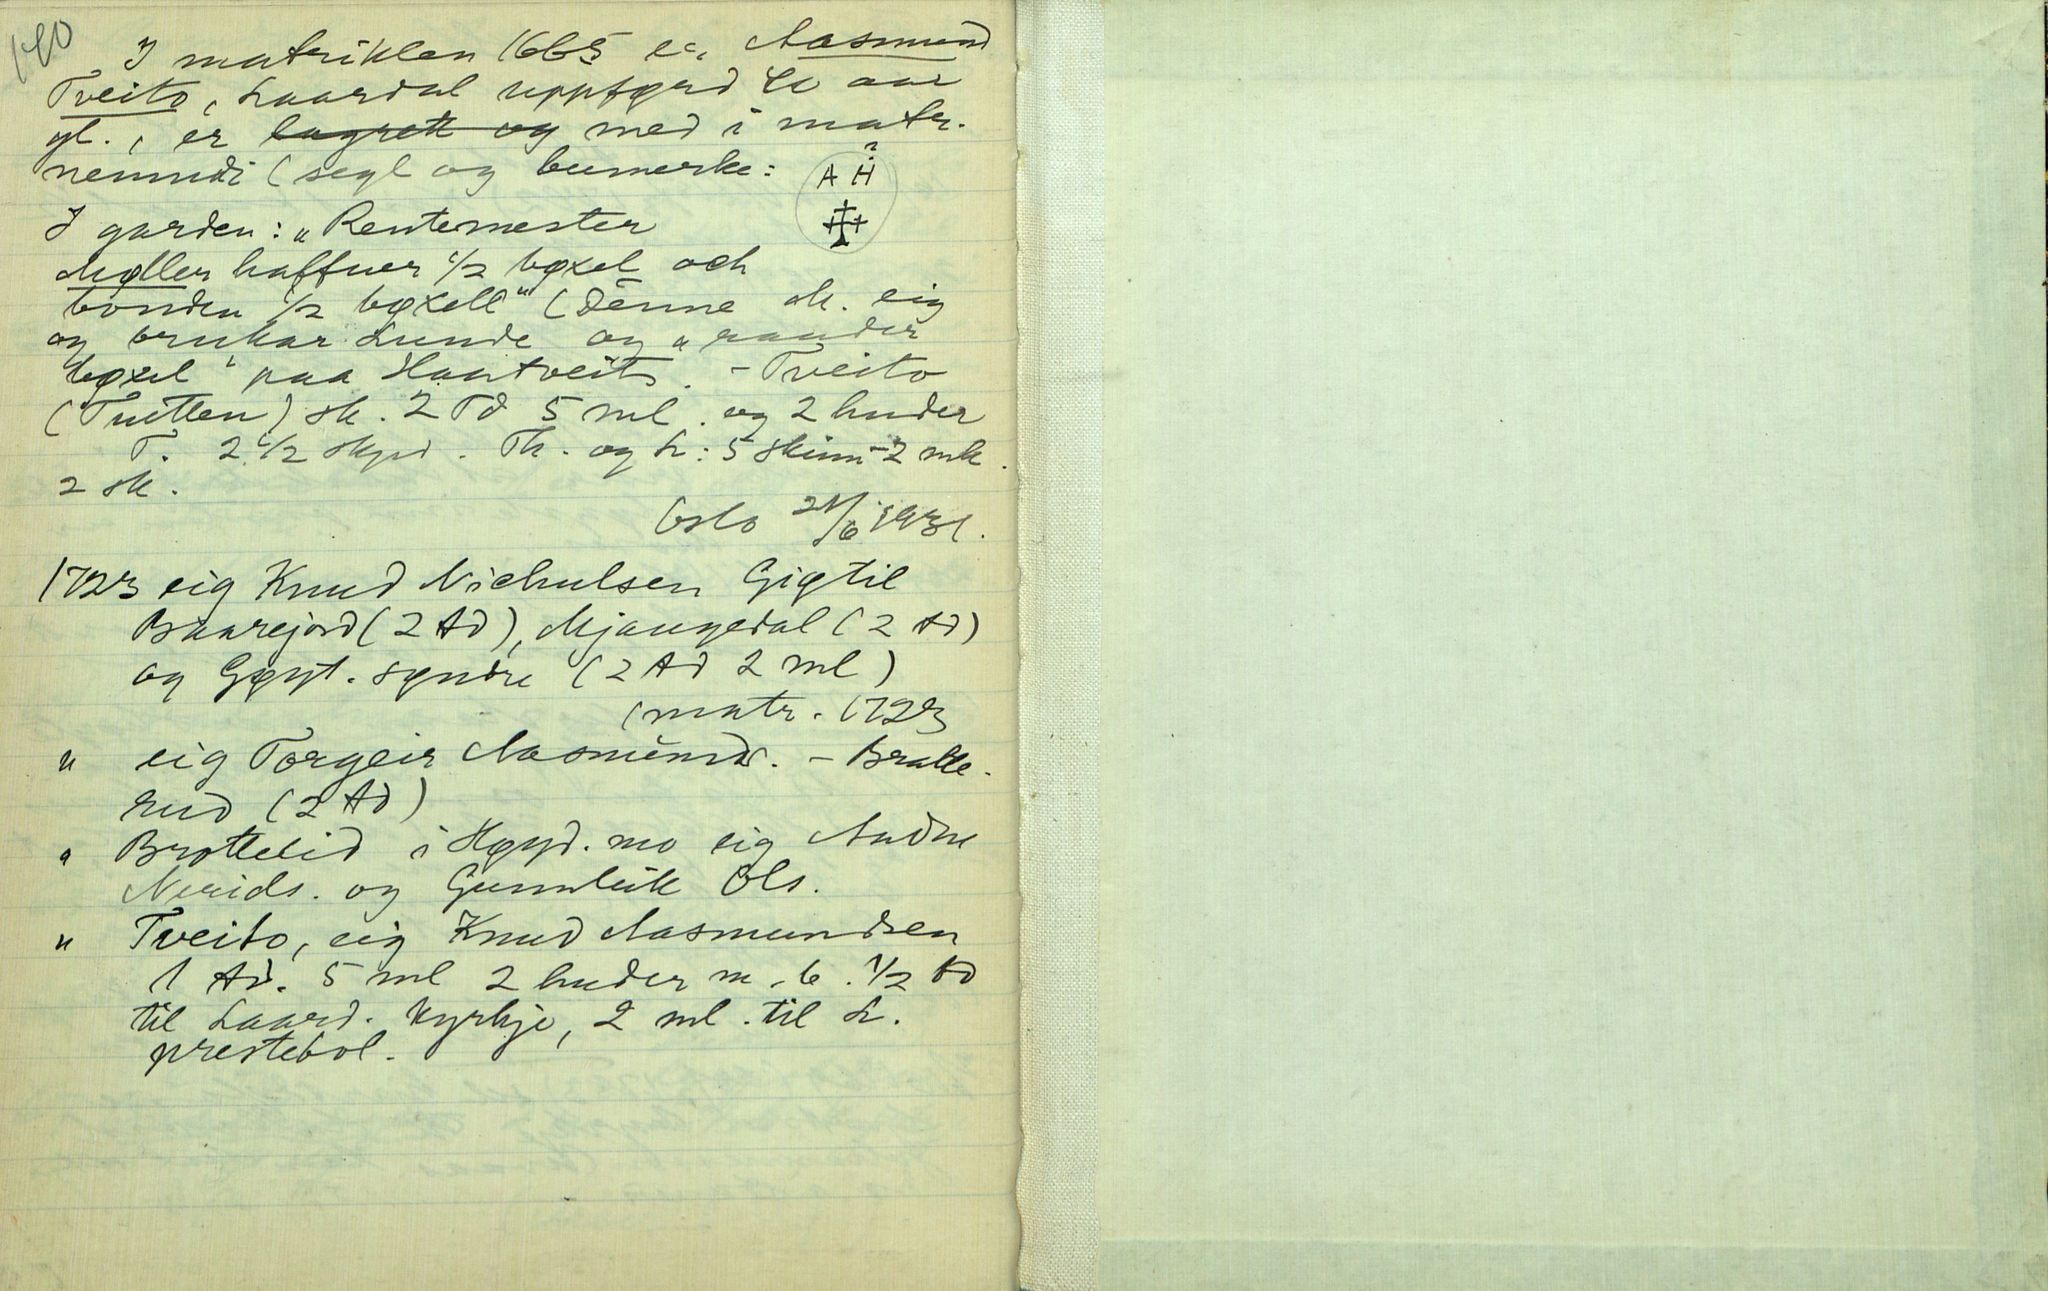 140
I matriklen 1665 er Aasmund
Tveito, Laardal uppførd 40 aar
gl., er lagrett og med i matr.
nemndi (segl og bumerke:
?
A H
I garden: "Rentemester
Møller haffuer 1/2 bøxel och
bonden 1/2 bøxell" (Denne sk. eig
og brukar Lunde og "raader
bøxel" paa Haatveit. - Tveito
(Tuitten) sk. 2 Td 5 ml. og 2 huder
T. 2 1/2 Skpd. Th. og L: 5 skinn - 2 mk.
2 sk.
Oslo 21/6 1931.
1723 eig Knud Nichulsen Gigtil
Baarejord (2 td), Mjaugedal (2 td)
og Gøyt. søndre (2 td 2 ml)
(matr. 1723
" eig Torgeir Aasmunds. - Bratte-
rud (2 td)
" Brottelid i Høyd. mo eig Audne
Nerids. og Gunnleik Ols.
" Tveito, eig Knud Aasmundsen
1 td. 5 ml 2 huder m. b. 1/2 td
til Laard. kyrkje, 2 ml. til L.
prestebol.